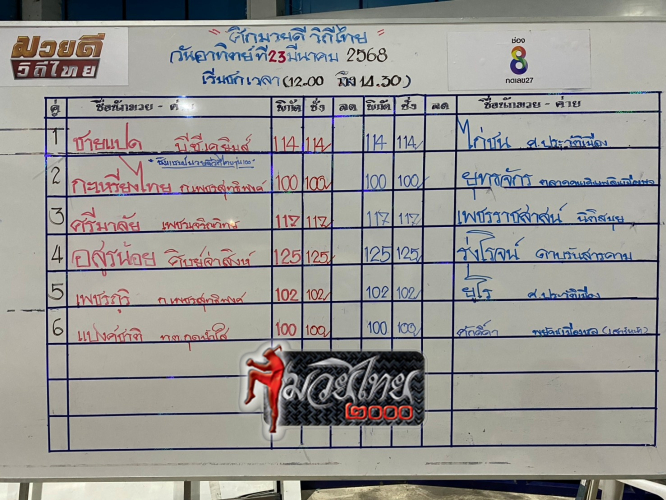 มวยดี
วิถีไทย
"ศึกมวยดี วิถีไทย"
วันอาทิตย์ที่ 23 มีนาคม 2568
เริ่มชกเวลา (12.00 ถึง 14.30)
ช่อง
8
กดเลข27
คู่ ชื่อนักมวย - ค่าย พิกัด ชั่ง ลด พิกัด ชั่ง ลด ชื่อนักมวย - ค่าย
1 ชายแปด 114 114 114 114 ไก่ชน ส.ประวัติเมือง
2 กะเหรี่ยงไทย ก.เพชรสุทธิพงศ์ 100 100 100 100 ยุทธจักร
3 ศรีมาลัย 117 117 117 117 เพชรราชสาสน์ นิติสมุย
4 อสูรน้อย ศิษย์จ่าสิงห์ 125 125 125 125 รุ่งโรจน์ ดาบรันสารคาม
5 เพชรภูริ ก.เพชรสุทธิพงศ์ 102 102 102 102 ยูโร ส.ประวัติเมือง
6 แบงค์ชาติ ท.ต.กุดน้ำใส 100 100 100 100 ศักดิ์ดา
มวยไทย
๒๐๐๐